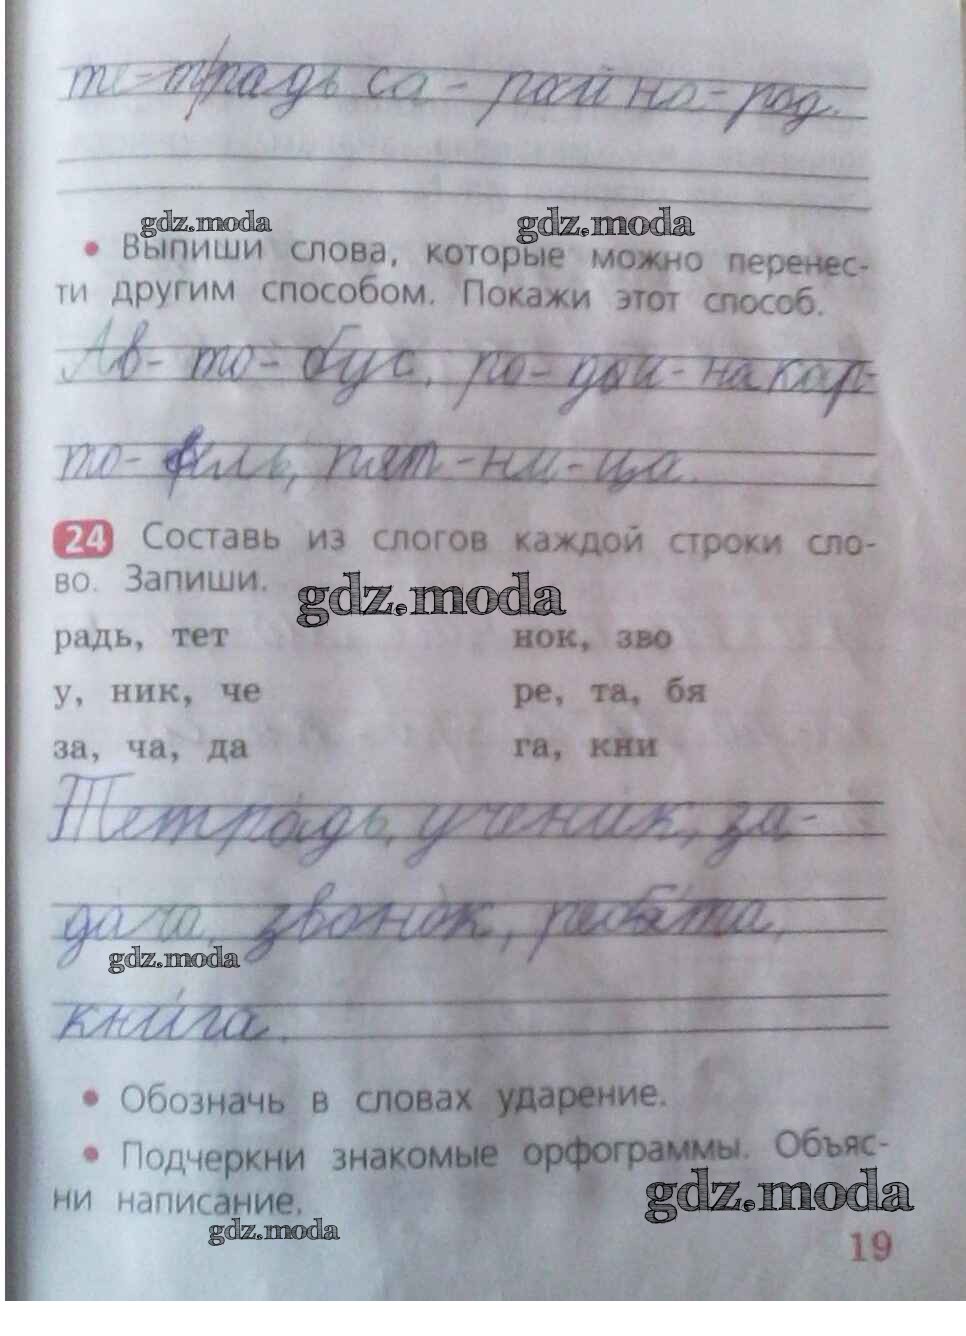 те-традь са-рай на-род.
gdz.moda gdz.moda
• Выпиши слова, которые можно перенес-
ти другим способом. Покажи этот способ.
Ав-то-бус, ро-дой-на кар-
то-фель, пят-ни-ца.
24 Составь из слогов каждой строки сло-
во. Запиши.
gdz.moda
радь, тет нок, зво
у, ник, че ре, та, бя
за, ча, да га, кни
Тетрадь, ученик, за-
дача, звонок, ребята,
gdz.moda
книга.
• Обозначь в словах ударение.
• Подчеркни знакомые орфограммы. Объяс-
ни написание.
gdz.moda
gdz.moda
19